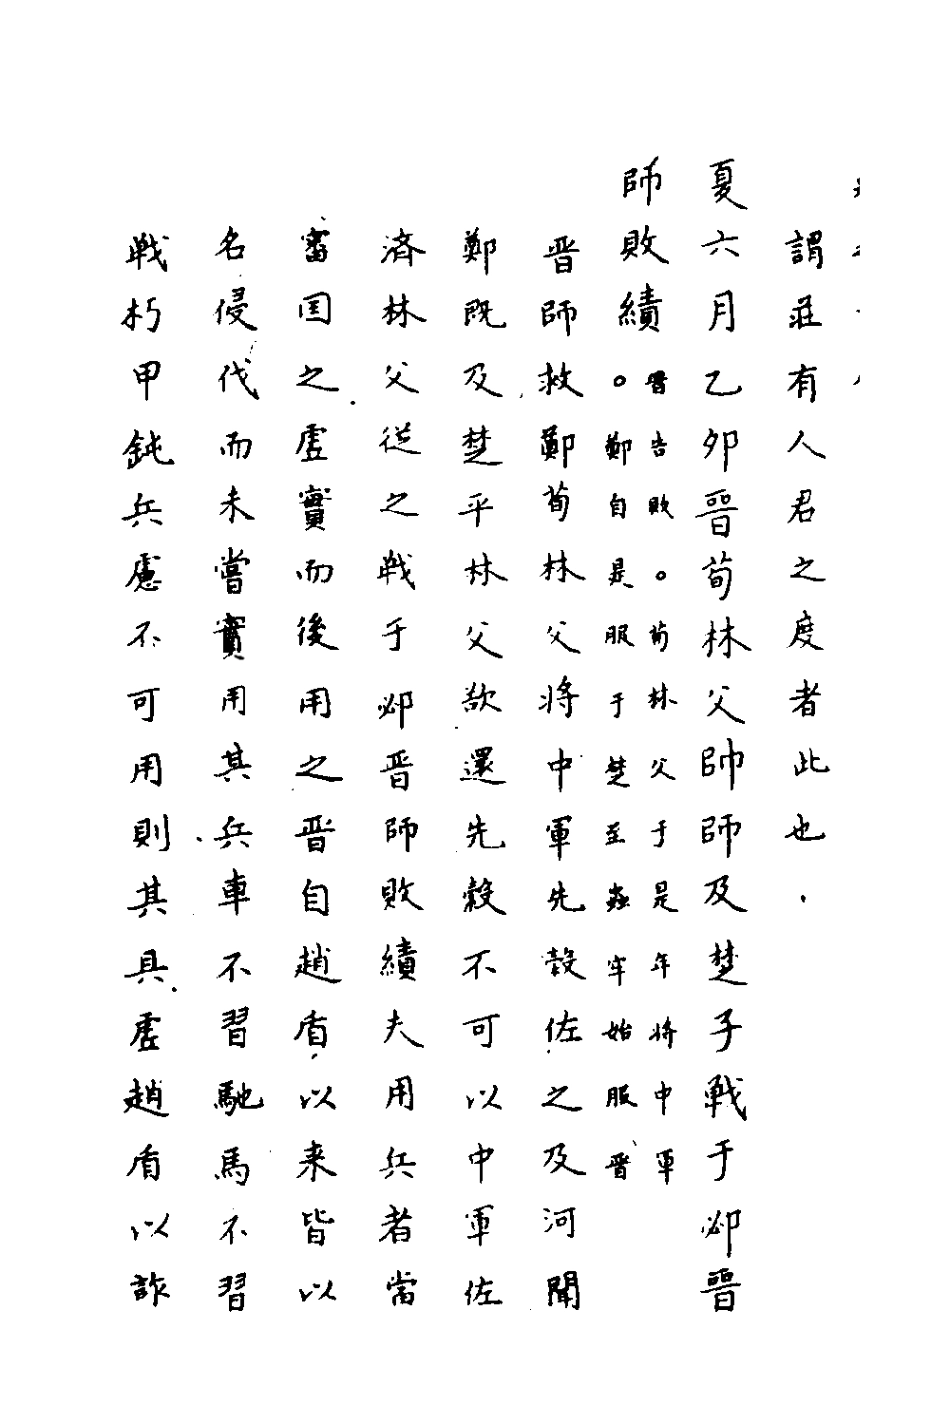 謂莊有人君之度者此也.
夏六月乙夘晋荀林父帥師及楚子戦于邲晋
師敗績。
晋告敗。荀林父于是年将中軍
鄭自是服于楚至蟲牢始服晋
晋師救鄭荀林父将中軍先縠佐之及河聞
鄭既及楚平林父欲還先縠不可以中軍佐
済林父從之戦于邲晋師敗績夫用兵者當
審囯之虗實而後用之晋自趙盾以来皆以
名侵伐而未嘗實用其兵車不習馳馬不習
戦朽甲鈍兵慮不可用則其具虗趙盾以詐